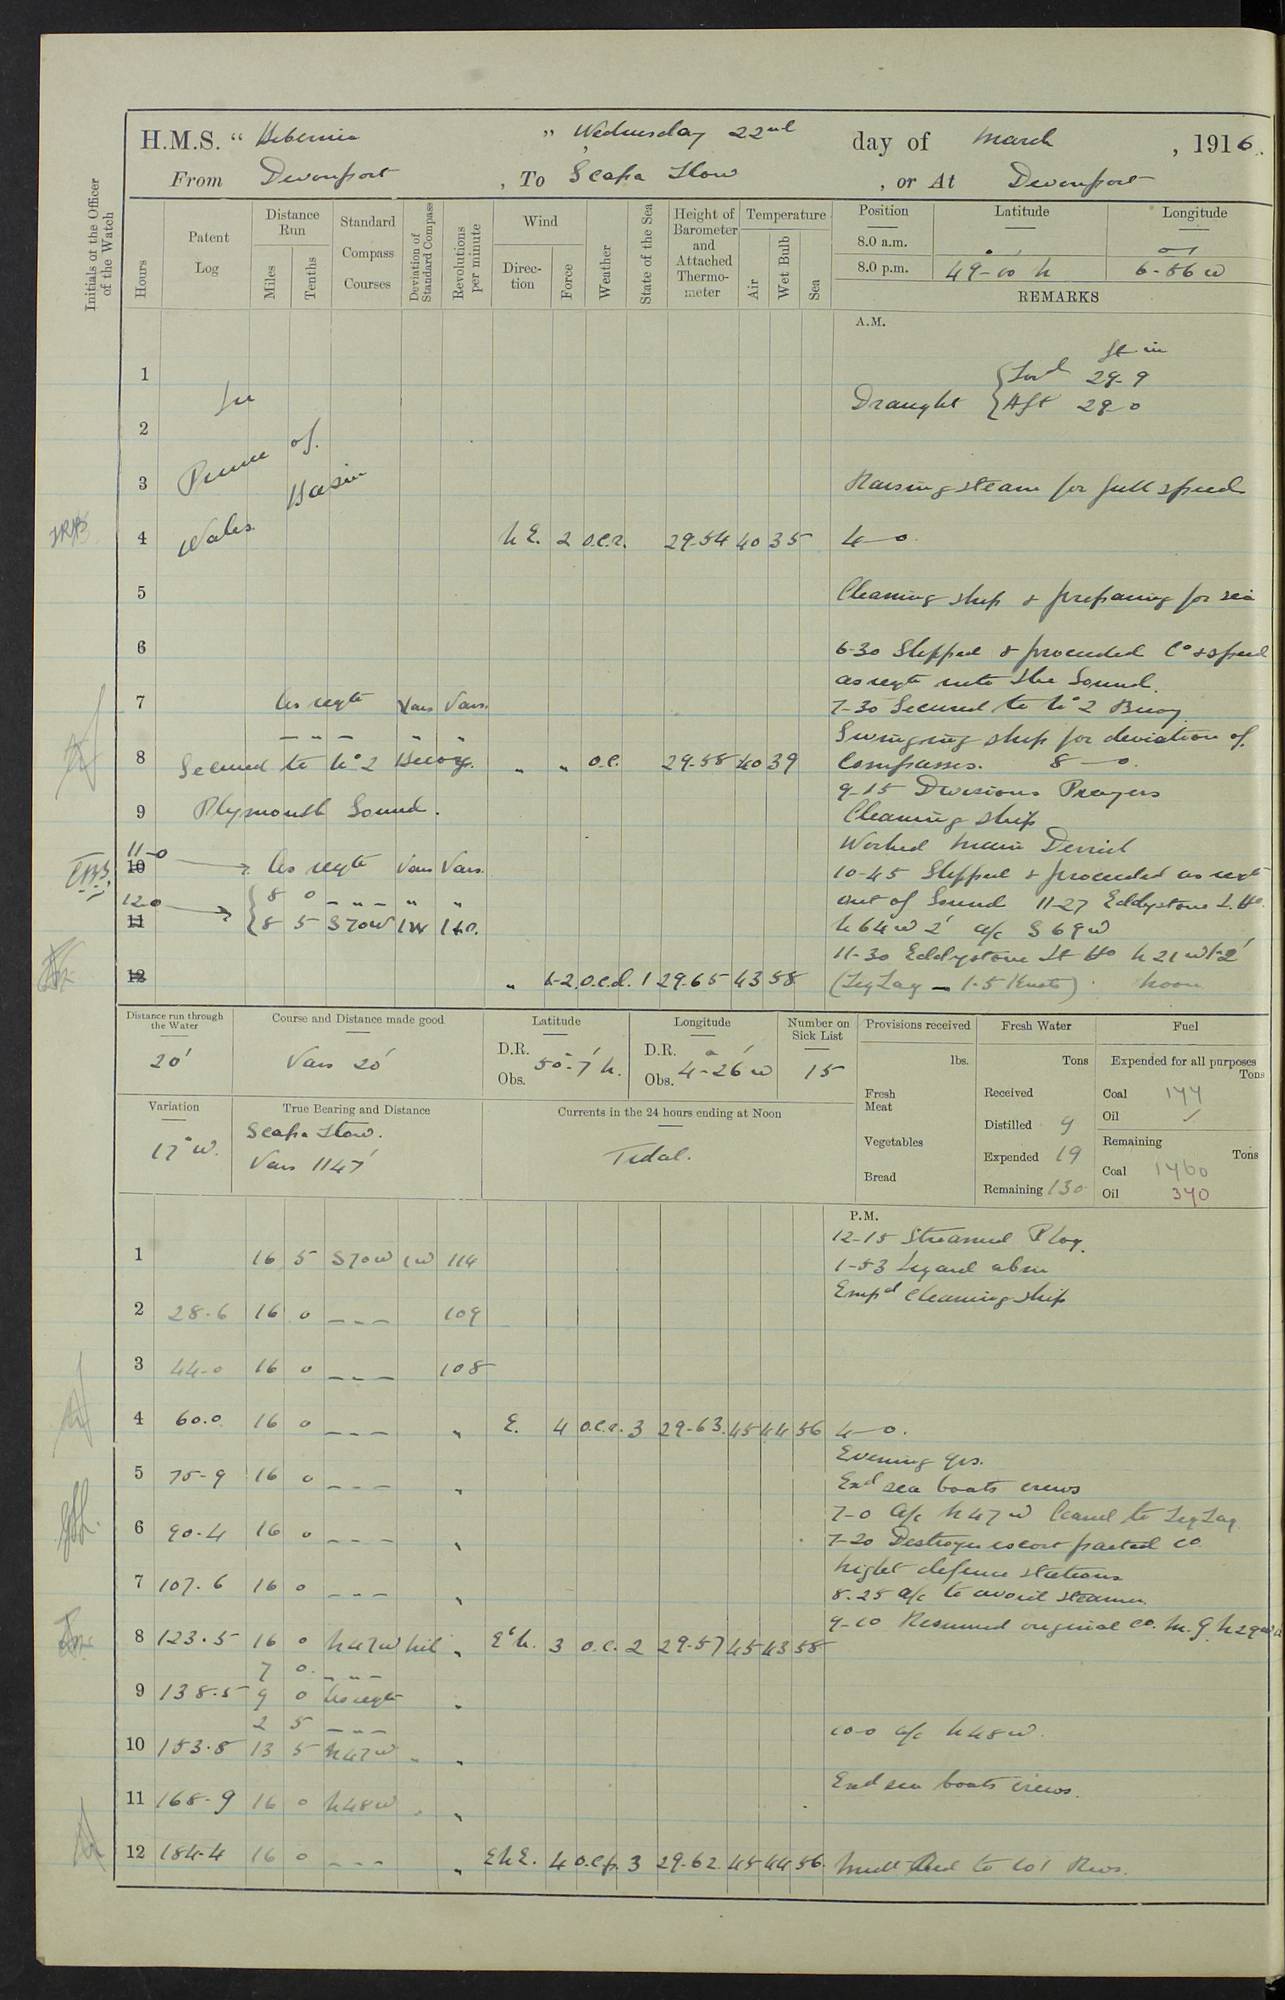 H.M.S. " Hibernia " , Wednesday 22nd day of March , 1916.
From Devonport , To Scapa Flow , or At Devonport
Initials of the Officer of the Watch
Hours
Patent Log
Distance Run
Miles
Tenths
Standard Compass Courses
Deviation of Standard Compass
Revolutions per minute
Wind
Direction
Force
Weather
State of the Sea
Height of Barometer and Attached Thermometer
Temperature
Air
Wet Bulb
Sea
Position Latitude Longitude
8.0 a.m.
8.0 p.m. 49-10 N 6-56 W
REMARKS
A.M.
ft in
1
Draught { For'd 29-9
Aft 29-0
In
2
Prince of
3 Raising steam for full speed
Wales Basin
4 N E. 2 o.c.r. 29.54 40 35 4—0.
5 Cleaning ship & preparing for sea
6 6-30 Slipped & proceeded Co & speed
as reqte into the Sound.
7 As reqte Vars Vars. 7-30 Secured to No 2 Buoy
— — — " " Swinging ship for deviation of
8 Secured to No 2 Buoy. " " o.c. 29.58 40 39 Compasses. 8—0.
9-15 Divisions Prayers
9 Plymouth Sound. Cleaning ship
Worked Main Derrick
11-0
10 As reqte Vars Vars. 10-45 Slipped & proceeded as reqte
12-0 8 0 — " — " " out of Sound 11-27 Eddystone L. Ho.
11 8 5 S70W 1W 110. N 64 W 2' a/c S 69 W
11-30 Eddystone Lt Ho N 21 W 1.2'
12 " 1-2 o.c.d. 1 29.65 43 58 (ZigZag — 1.5 Knots). Noon
Distance run through the Water 20'
Course and Distance made good Vars 20'
Latitude D.R. 50°-7' N. Obs.
Longitude D.R. 4°-26' W Obs.
Number on Sick List 15
Variation 17° W.
True Bearing and Distance Scapa Flow. Vars 1147'
Currents in the 24 hours ending at Noon Tidal.
Provisions received lbs.
Fresh Meat
Vegetables
Bread
Fresh Water Tons
Received
Distilled 9
Expended 19
Remaining 130
Fuel
Expended for all purposes Tons
Coal 144
Oil ✓
Remaining Tons
Coal 1460
Oil 340
P.M.
12-15 Streamed P log.
1 16 5 S70W 1W 114 1-53 Lizard abm
Emp'd cleaning ship
2 28.6 16 0 — — — 109
3 44-0 16 0 — — — 108
4 60.0 16 0 — — — " E. 4 o.c.r. 3 29-63. 45 44 56 4—0.
Evening qrs.
5 75-9 16 0 — — — " Exd sea boats crews
7-0 a/c N 47 W Ceased to ZigZag
6 90.4 16 0 — — — " 7-20 Destroyer escort parted co.
Night defence stations
7 107.6 16 0 — — — " 8.25 a/c to avoid steamer
9-10 Resumed original co.
8 123.5 16 0 N47W Nil " E'N. 3 o.c. 2 29-57 45 43 55
7 0 — — —
9 138.5 9 0 As reqte "
2 5 — — —
10 153.8 13 5 N47W " " 10-0 a/c N 48 W.
11 168-9 16 0 N48W " " Exd sea boats crews.
12 184.4 16 0 — — — " ENE. 4 o.c.p. 3 29.62 45 44 56. to 101 Revs.